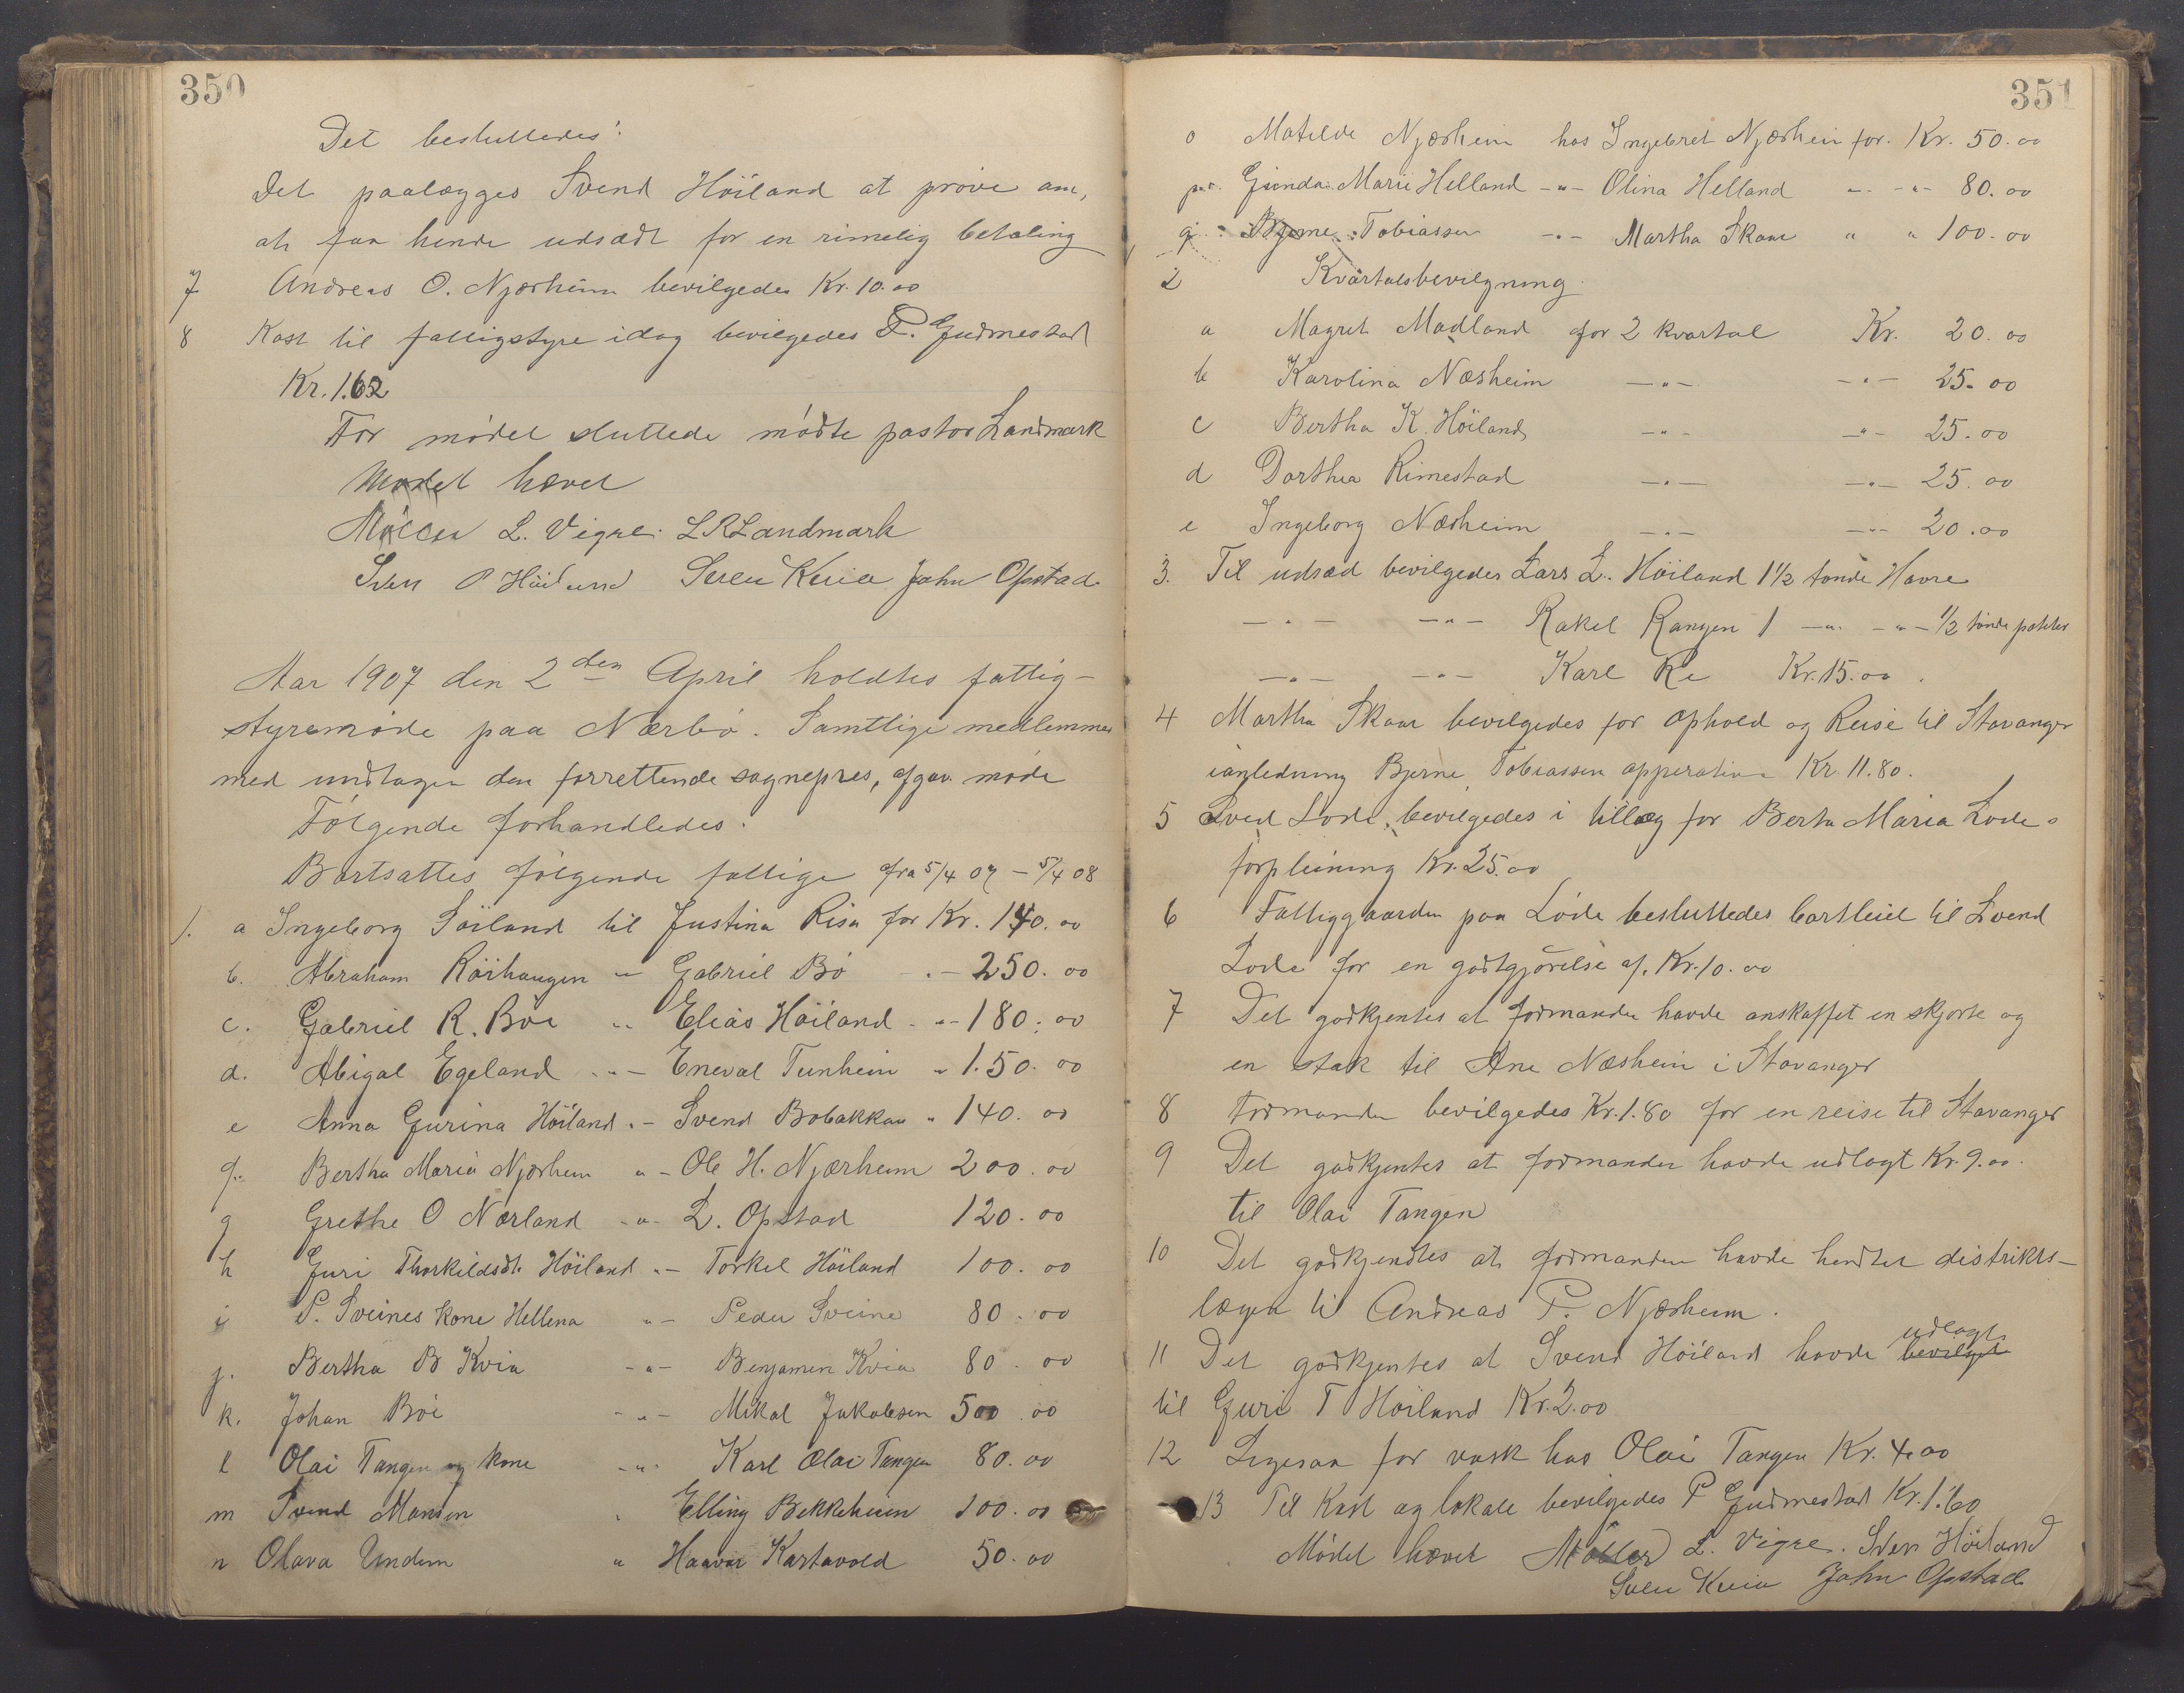 350
Det besluttedes:
Det paalægges Svend Höiland at pröve om,
at faa hende udsædt for en rimelig betaling
7 Andreas O. Njærheim bevilgedes Kr. 10.00
8 Kost til fattigstyre idag bevilgedes P. Gudmestad
Kr. 1.62
Før mödet sluttede mödte pastor Landmark
Mödet hævet
Möller L. Vigre. L R Landmark
Sven P Höiland Seren Kvia John Opstad
Aar 1907 den 2den April holdtes fattig-
styremöde paa Nærbö. Samtlige medlemmer
med undtagen den forrettende sognepres, afgav möde
Fölgende forhandledes:
Bortsattes fölgende fattige fra 5/4 07 – 5/4 08
1. a Ingeborg Söiland til Justina Risa for Kr. 140.00
b. Abraham Röihaugen -"- Gabriel Bö -"- 250.00
c. Gabriel R. Böe -"- Elias Höiland -"- 180.00
d. Abigal Egeland -"- Eneval Tunheim " 1.50.00
e Anna Gurina Höiland -"- Svend Bobakkan " 140.00
f. Bertha Maria Njærhem " - Ole H. Njærheim 200.00
g Grethe O Nærland -"- L. Opstad 120.00
h Guri Thorkildsdt. Höiland -"- Torkel Höiland 100.00
i P. Sveines kone Hellena "- Peder Sveine 80.00
j. Bertha B Kvia -"- Benjamen Kvia 80.00
k. Johan Böe -"- Mikal Jakobsen 500.00
l Olai Tangen og kone -"- Karl Olai Tangen 80.00
m Svend Monsen " Elling Bekkeheien 100.00
n Olava Undem " Haavar Kartavold 50.00
351
o Matilde Njærheim hos Ingebret Njærheim for. Kr. 50.00
p. Gunda Marie Helland -"- Olina Helland -"- -"- 80.00
q Bjerne Tobiassen -"- Martha Skaar " " 100.00
2 Kvartalsbevilgning
a Magret Madland for 2 kvartal Kr. 20.00
b Karolina Næsheim -"- -"- 25.00
c Bertha K. Höiland -"- -"- 25.00
d Dorthea Rimestad -"- -"- 25.00
e Ingeborg Næsheim -"- -"- 20.00
3. Til udsæd bevilgedes Lars L. Höiland 1 1/2 tönde Havre
-"- -"- Rakel Rangen 1 -"- -"- 1/2 tönde poteter
-"- -"- Karl Re Kr. 15.00.
4 Martha Skaar bevilgedes for ophold og Reise til Stavanger
ianledning Bjerne Tobiassen opperation Kr. 11.80.
5 Sved Lode bevilgedes i tillæg for Berta Maria Lodes
forpleining Kr. 25.00
6 Fattiggaarden paa Löde besluttedes bortleiet til Svend
Lode for en godtgjörelse af. Kr. 10.00
7 Det godkjentes at formanden havde anskaffet en skjorte og
en stak til Ane Næsheim i Stavanger
8 Formanden bevilgedes Kr. 1.80 for en reise til Stavanger
9 Det godkjentes at formanden havde udlagt Kr. 9.00.
til Olai Tangen
10 Det godkjendtes at formanden havde hendtet distrikts-
lægen til Andreas P. Njærheim.
11 Det godkjentes at Svend Höiland havde bevilget udlagt
til Guri T Höiland Kr. 2.00
12 Ligesaa for vask hos Olai Tangen Kr. 4.00
13 Til Kost og lokale bevilgedes P Gudmestad Kr. 1.60
Mödet hævet Möller L. Vigre. Sven Höiland
Seren Kvia John Opstad